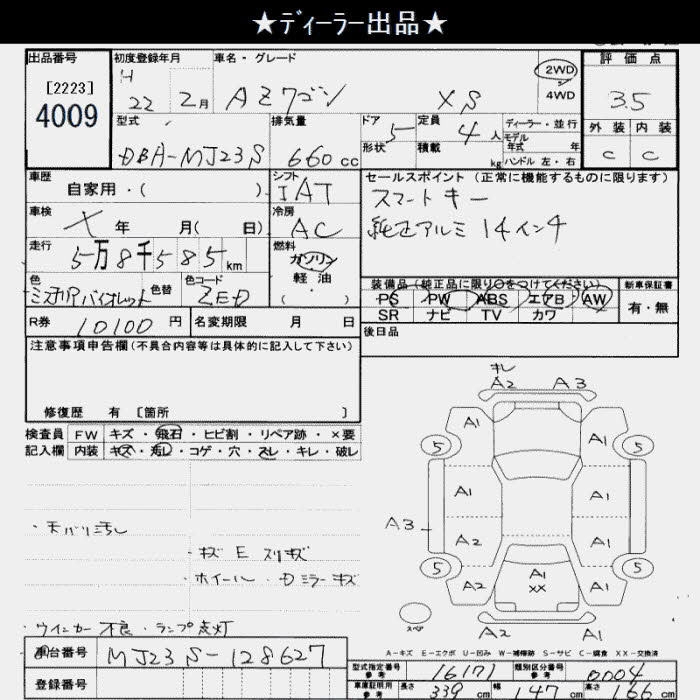 ★ディーラー出品★
出品番号 初度登録年月 車名・グレード 評価点
[2223] H 2WD
4009 22 2月 AZワゴン XS 4WD 3.5
型式 排気量 ドア 定員 ディーラー・並行 外装 内装
5 4人 モデル年式 年
DBA-MJ23S 660cc 形状 積載 kg ハンドル 左・右 C C
車歴 シフト セールスポイント(正常に機能するものに限ります)
自家用・( ) IAT スマートキー
車検 冷房 純正アルミ14インチ
メ 年 月( 日) AC
走行 燃料
5万8千585km ガソリン
色 色替 色コード 軽油 装備品(純正品に限り○をつけてください) 新車保証書
バイオレット ZED ( ・ ) PS PW ABS エアB AW 有・無
SR ナビ TV カワ
R券 10100円 名変期限 月 日 後日品
注意事項申告欄(不具合内容等は具体的に記入して下さい)
修復歴 有 [箇所 ]
検査員 FW キズ・飛石・ヒビ割・リペア跡・×要
記入欄 内装 キズ・汚し・コゲ・穴・スレ・キレ・破レ
・天バリ汚し
・キズ E スリキズ
・ホイール・Dミラーキズ
・ウインカー不良・ランプ点灯
キレ
A2 A3
A1 A1
5 5
A1 A1
A3 A2 A1
5 5
A2 A1 XX A1
スペア A2 A1
A-キズ E-エクボ U-凹み W-補修跡 S-サビ C-腐食 XX-交換済
車台番号 MJ23S-128627
登録番号
型式指定番号 参考 16171 類別区分番号 参考 0004
車庫証明用 参考 長さ 339cm 幅 147cm 高さ 66cm